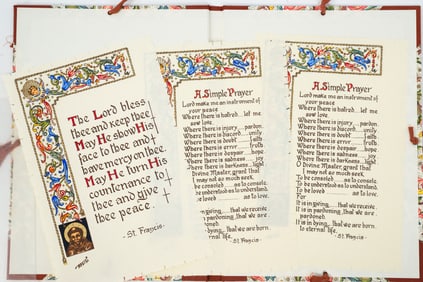 The Lord bless
thee and keep thee
May He show His
face to thee and
have mercy on thee.
May He turn His
countenance to
thee and give
thee peace.
-St. Francis-
A Simple Prayer
Lord make me an instrument of
your peace
Where there is hatred... let me
sow love.
Where there is injury...pardon
Where there is discord...unity
Where there is doubt...faith
Where there is error...truth
Where there is despair...hope
Where there is sadness...joy
Where there is darkness...light
O Divine Master, grant that
I may not so much seek
To be consoled...as to console
To be understood as to understand.
To be loved...as to love.
in giving...that we receive.
in pardoning, that we are
pardoned.
in dying...that we are born
eternal life.
-St. Francis-
A Simple Prayer
Lord make me an instrument of
your peace
Where there is hatred... let me
sow love.
Where there is injury...pardon
Where there is discord...unity
Where there is doubt...faith
Where there is error...truth
Where there is despair...hope
Where there is sadness...joy
Where there is darkness...light
O Divine Master, grant that
I may not so much seek
To be consoled...as to console
To be understood as to understand.
To be loved...as to love.
For
It is in giving...that we receive.
It is in pardoning, that we are
pardoned.
It is in dying...that we are born
to eternal life.
-St. Francis-